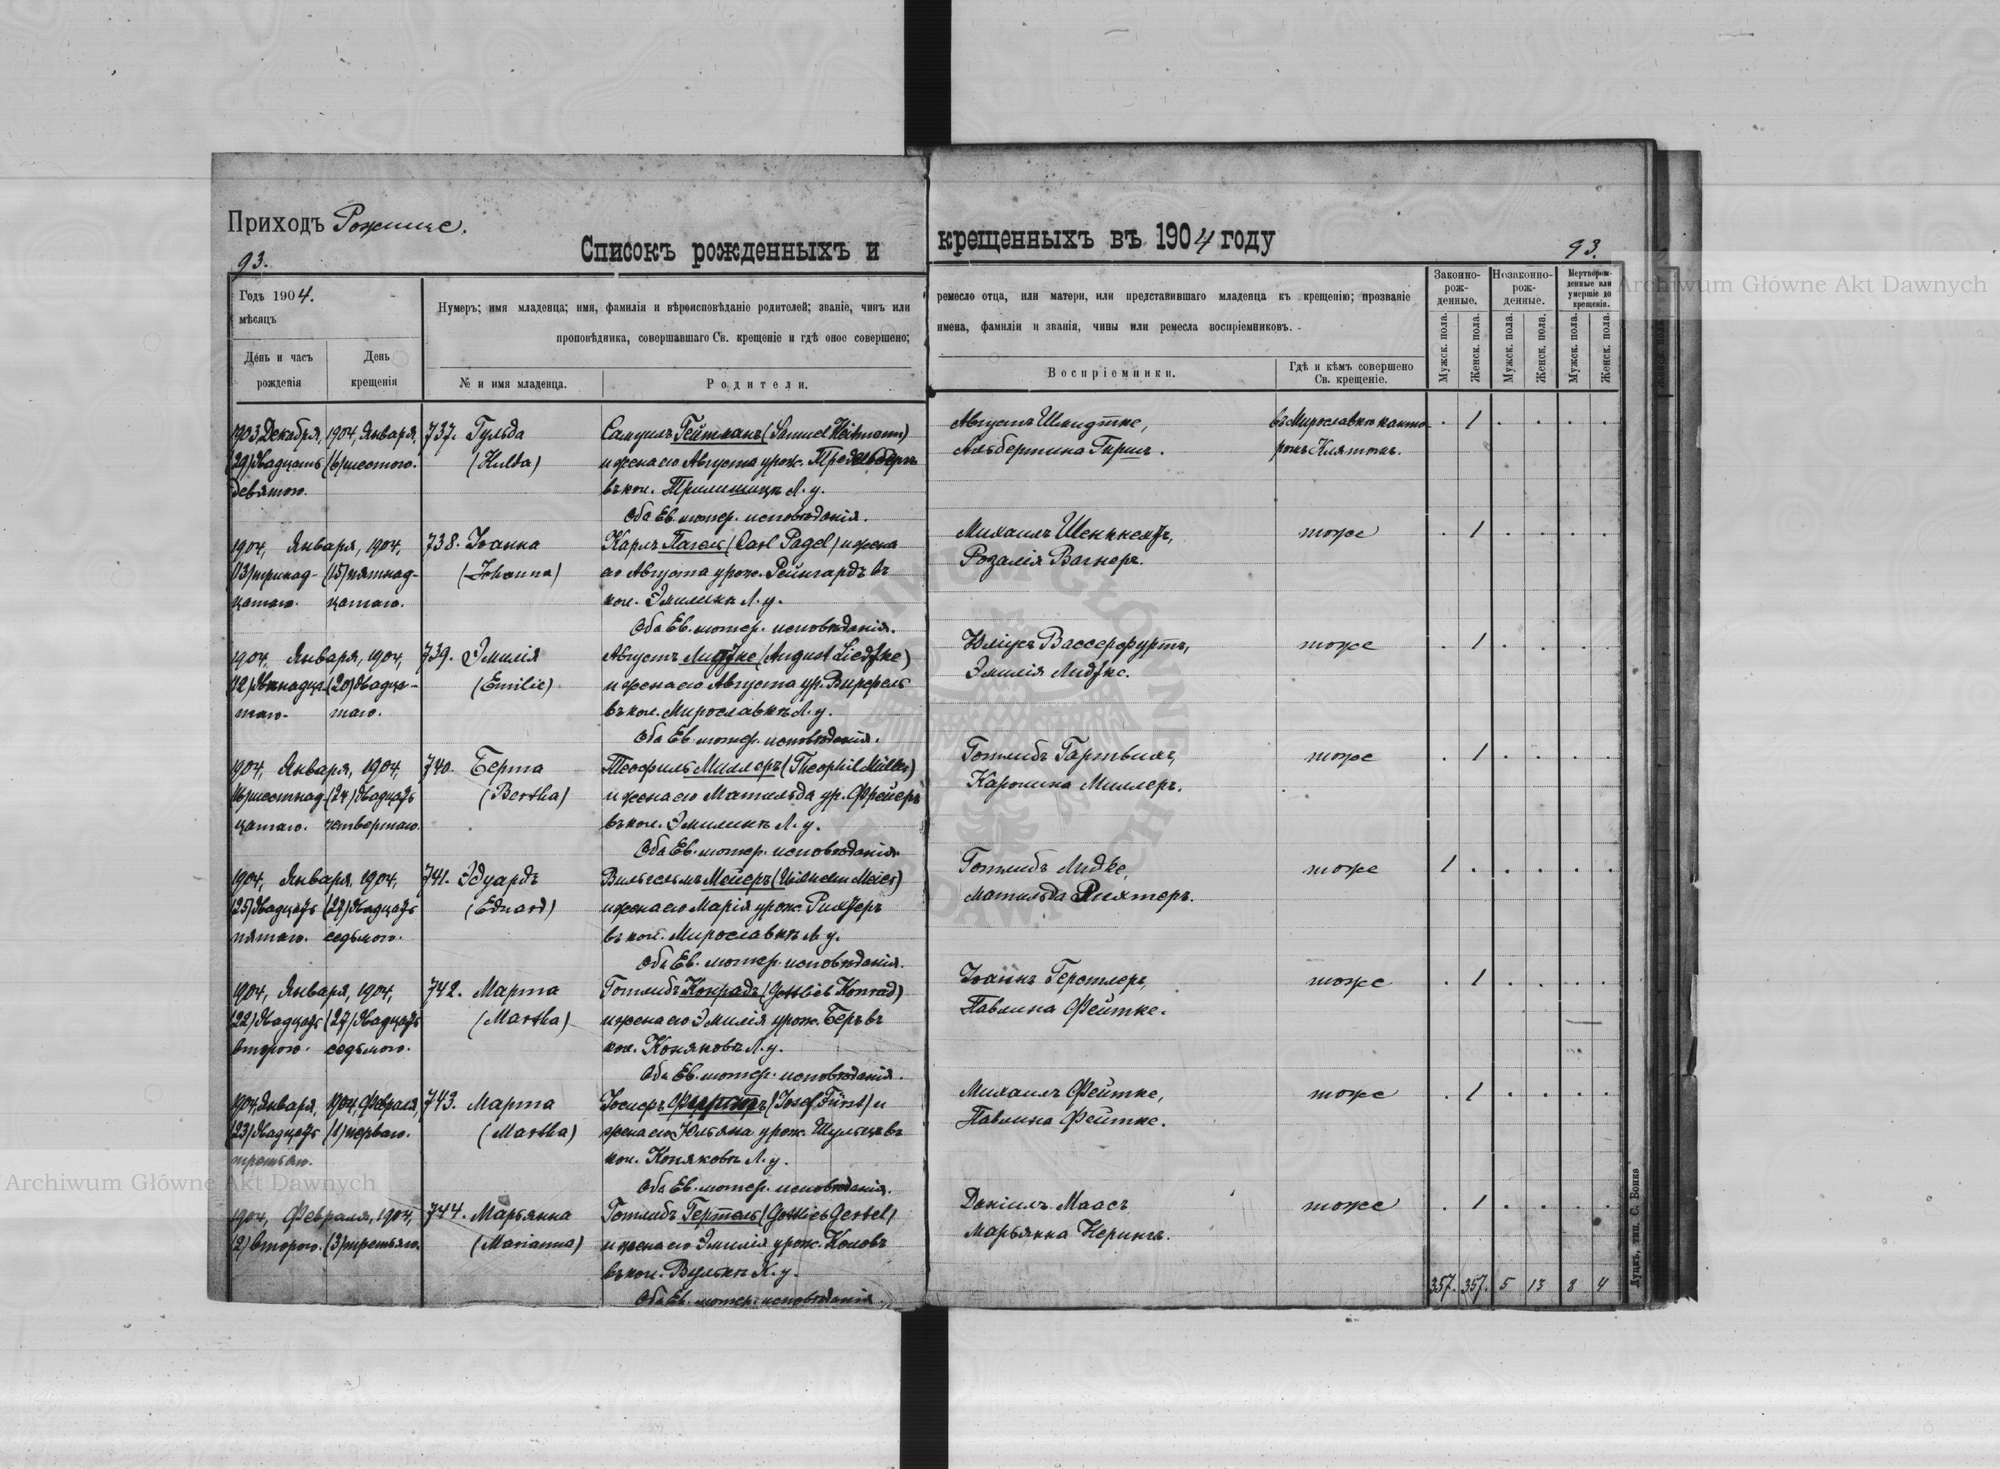 Приходъ Рожище.
Списокъ рожденныхъ и
крещенныхъ въ 1904 году
93.
93.
Годъ 1904.
мѣсяцъ
День и часъ
рожденія
День
крещенія
Нумеръ; имя младенца; имя, фамилія и вѣроисповѣданіе родителей; званіе, чинъ или
проповѣдника, совершавшаго Св. крещеніе и гдѣ оное совершено;
№ и имя младенца.
Родители.
ремесло отца, или матери, или представившаго младенца къ крещенію; прозваніе
имена, фамиліи и званія, чины или ремесла воспріемниковъ.
Воспріемники.
Гдѣ и кѣмъ совершено
Св. крещеніе.
Законно-
рож-
денные.
Незаконно-
рож-
денные.
Мертворож-
денные или
умершіе до
крещенія.
Мужск. пола.
Женск. пола.
Мужск. пола.
Женск. пола.
Мужск. пола.
Женск. пола.
1903, Декабря,
(29) двадцать
девятого.
1904, Января,
(6) шестого.
737. Гульда
(Hulda)
Самуилъ Гейтманъ (Samuel Heitmann)
и жена его Августа урож.
въ кол. Л. у.
Оба Ев. лютер. исповѣданія.
Августъ Шмидтке,
Альбертина Гиршъ.
въ Мирославкѣ канто
ромъ Клятомъ.
. 1 . . . .
1904, Января, 1904,
(13) тринад- (15) пятнад-
цатаго. цатаго.
738. Іоанна
(Johanna)
Карлъ Пагель (Carl Pagel) и жена
его Августа урож. Рейнгардъ въ
кол. Эмилинъ Л. у.
Оба Ев. лютер. исповѣданія.
Михаилъ
Розалія Вагнеръ.
тоже
. 1 . . . .
1904, Января, 1904,
(12) двѣнадца- (20) двадца-
таго. таго.
739. Эмилія
(Emilie)
Августъ Лидтке (August Liedtke)
и жена его Августа ур.
въ кол. Мирославкѣ Л. у.
Оба Ев. лютер. исповѣданія.
Юліусъ Вассерфуртъ,
Эмилія Лидтке.
тоже
. 1 . . . .
1904, Января, 1904,
(16) шестнад- (24) двадцать
цатаго. четвертаго.
740. Берта
(Bertha)
Теофиль Миллеръ (Theophil Müller)
и жена его Матильда ур. Фрейеръ
въ кол. Эмилинъ Л. у.
Оба Ев. лютер. исповѣданія.
Готлибъ Гартвихъ,
Каролина Миллеръ.
тоже
. 1 . . . .
1904, Января, 1904,
(25) двадцать (27) двадцать
пятаго. седьмого.
741. Эдуардъ
(Eduard)
Вильгельмъ Мейеръ (Wilhelm Meier)
и жена его Марія урож. Рихтеръ
въ кол. Мирославкѣ Л. у.
Оба Ев. лютер. исповѣданія.
Готлибъ Лидке,
Матильда Рихтеръ.
тоже
1 . . . . .
1904, Января, 1904,
(22) двадцать (27) двадцать
второго. седьмого.
742. Марта
(Martha)
Готлибъ Конрадъ (Gottlieb Konrad)
и жена его Эмилія урож. Беръ въ
кол. Коняковъ Л. у.
Оба Ев. лютер. исповѣданія.
Іоаннъ Герстлеръ,
Павлина Фейтке.
тоже
. 1 . . . .
1904, Января, 1904, Февраля,
(23) двадцать (1) перваго.
третьяго.
743. Марта
(Martha)
Іосифъ (Josef Fürst) и
жена его Юльяна урож. Шульцъ въ
кол. Коняковъ Л. у.
Оба Ев. лютер. исповѣданія.
Михаилъ Фейтке,
Павлина Фейтке.
тоже
. 1 . . . .
1904, Февраля, 1904,
(2) второго. (3) третьяго.
744. Марьянна
(Marianna)
Готлибъ Гертель (Gottlieb Gertel)
и жена его Эмилія урож.
въ кол. Вулькѣ К. у.
Оба Ев. лютер. исповѣданія.
Даніилъ Маасъ
Марьянна Нерингъ.
тоже
. 1 . . . .
357. 357. 5 13 8 4
Луцкъ, тип. С. Бонка
Archiwum Główne Akt Dawnych
Archiwum Główne Akt Dawnych